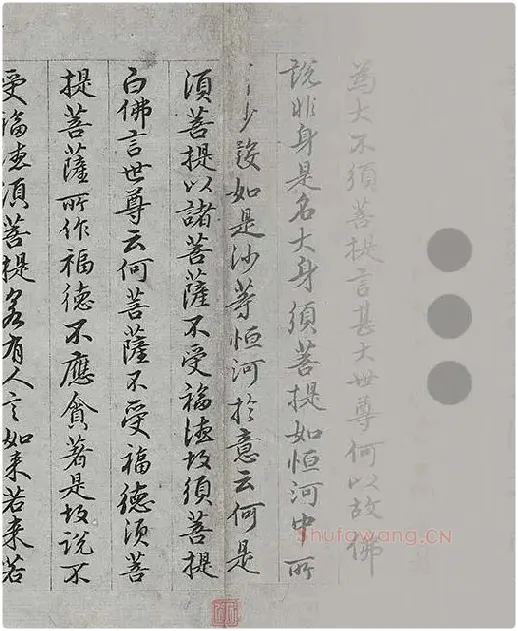 為大不須菩提言甚大世尊何以故佛
說非身是名大身須菩提如恒河中所
沙數如是沙等恒河於意云何是
須菩提以諸菩薩不受福德故須菩提
白佛言世尊云何菩薩不受福德須菩
提菩薩所作福德不應貪著是故說不
受福德須菩提若有人言如来若来若
Shufawang.CN